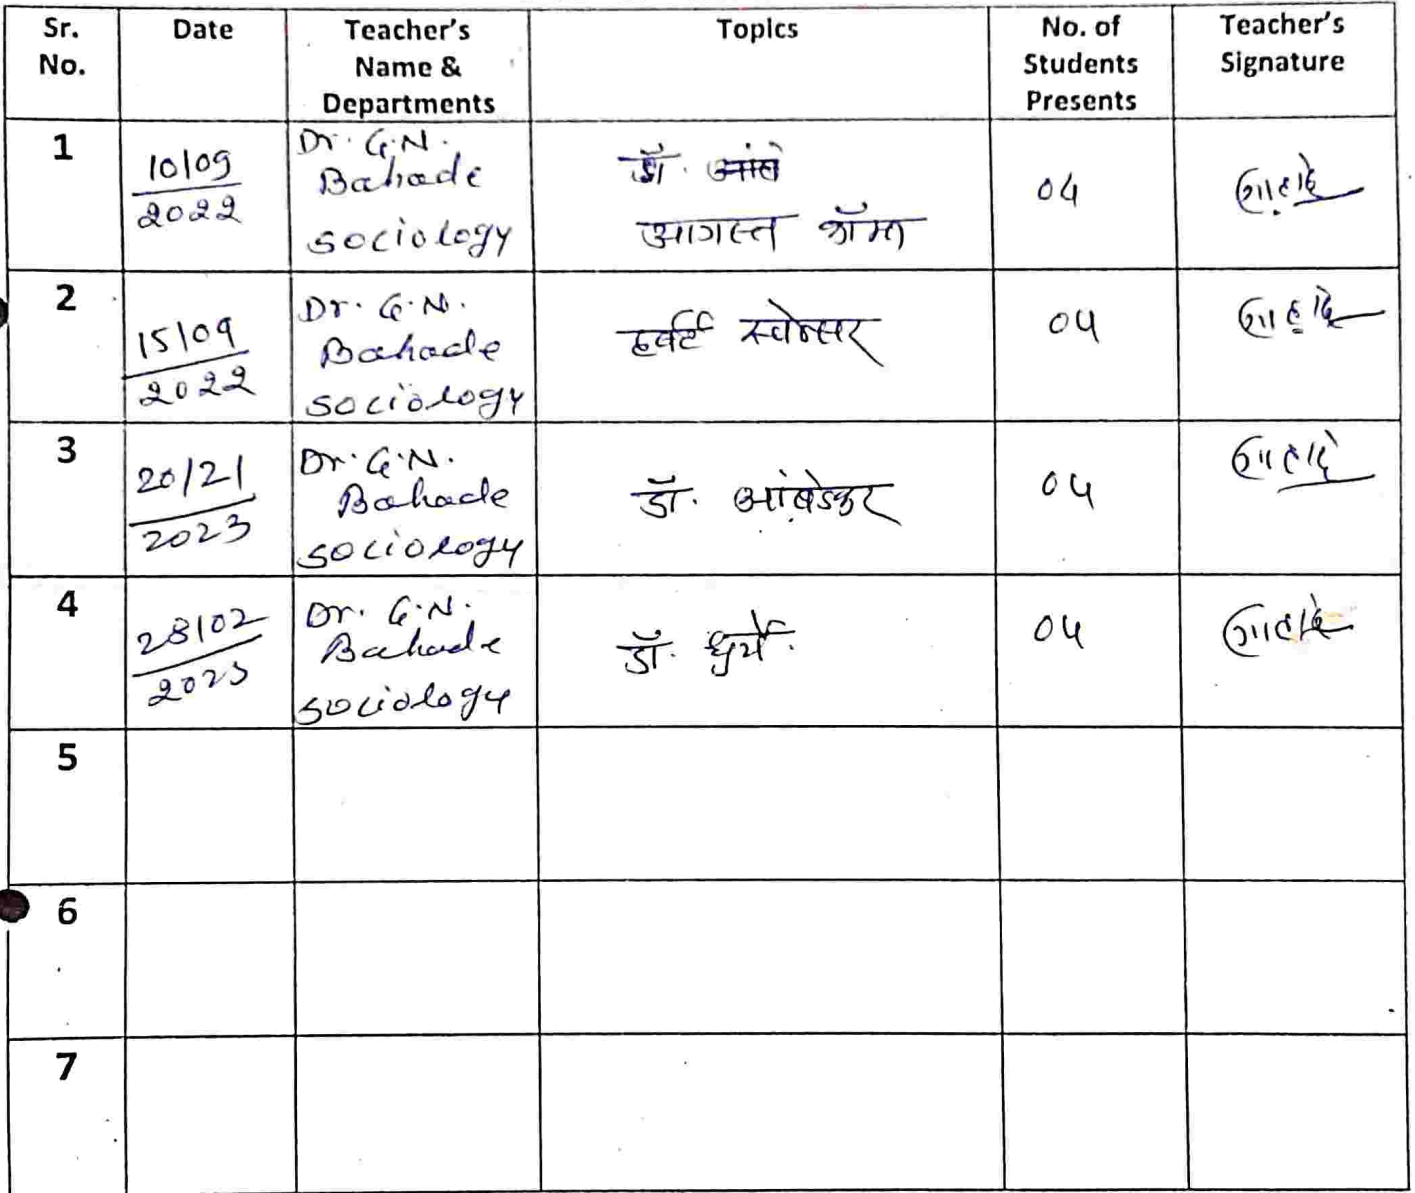 Sr. No.
Date
Teacher's Name & Departments
Topics
No. of Students Presents
Teacher's Signature
1
10/09
2022
Dr. G.N.
Bahade
sociology
डॉ. आंबे
आगस्त कॉम्त
04
2
15/09
2022
Dr. G.N.
Bahade
sociology
हर्बर्ट स्पेन्सर
04
3
20/21
2023
Dr. G.N.
Bahade
sociology
डॉ. आंबेडकर
04
4
28/02
2023
Dr. G.N.
Bahade
sociology
डॉ. घुर्ये.
04
5
6
7